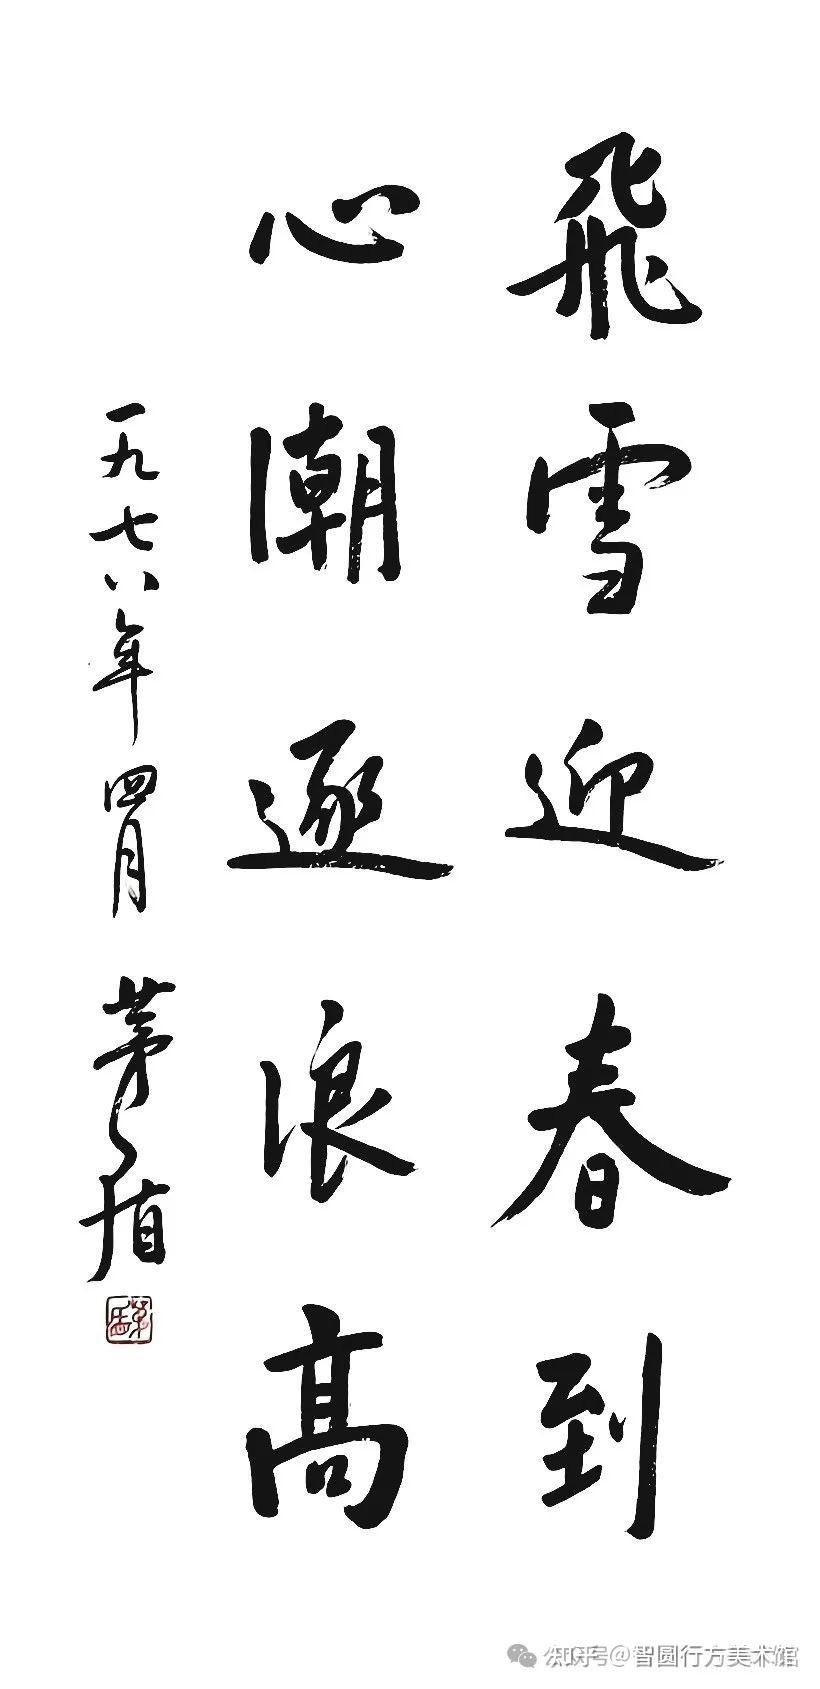 飛雪迎春到
心潮逐浪高
一九七八年四月 茅盾
茅盾
知乎号@智圆行方美术馆